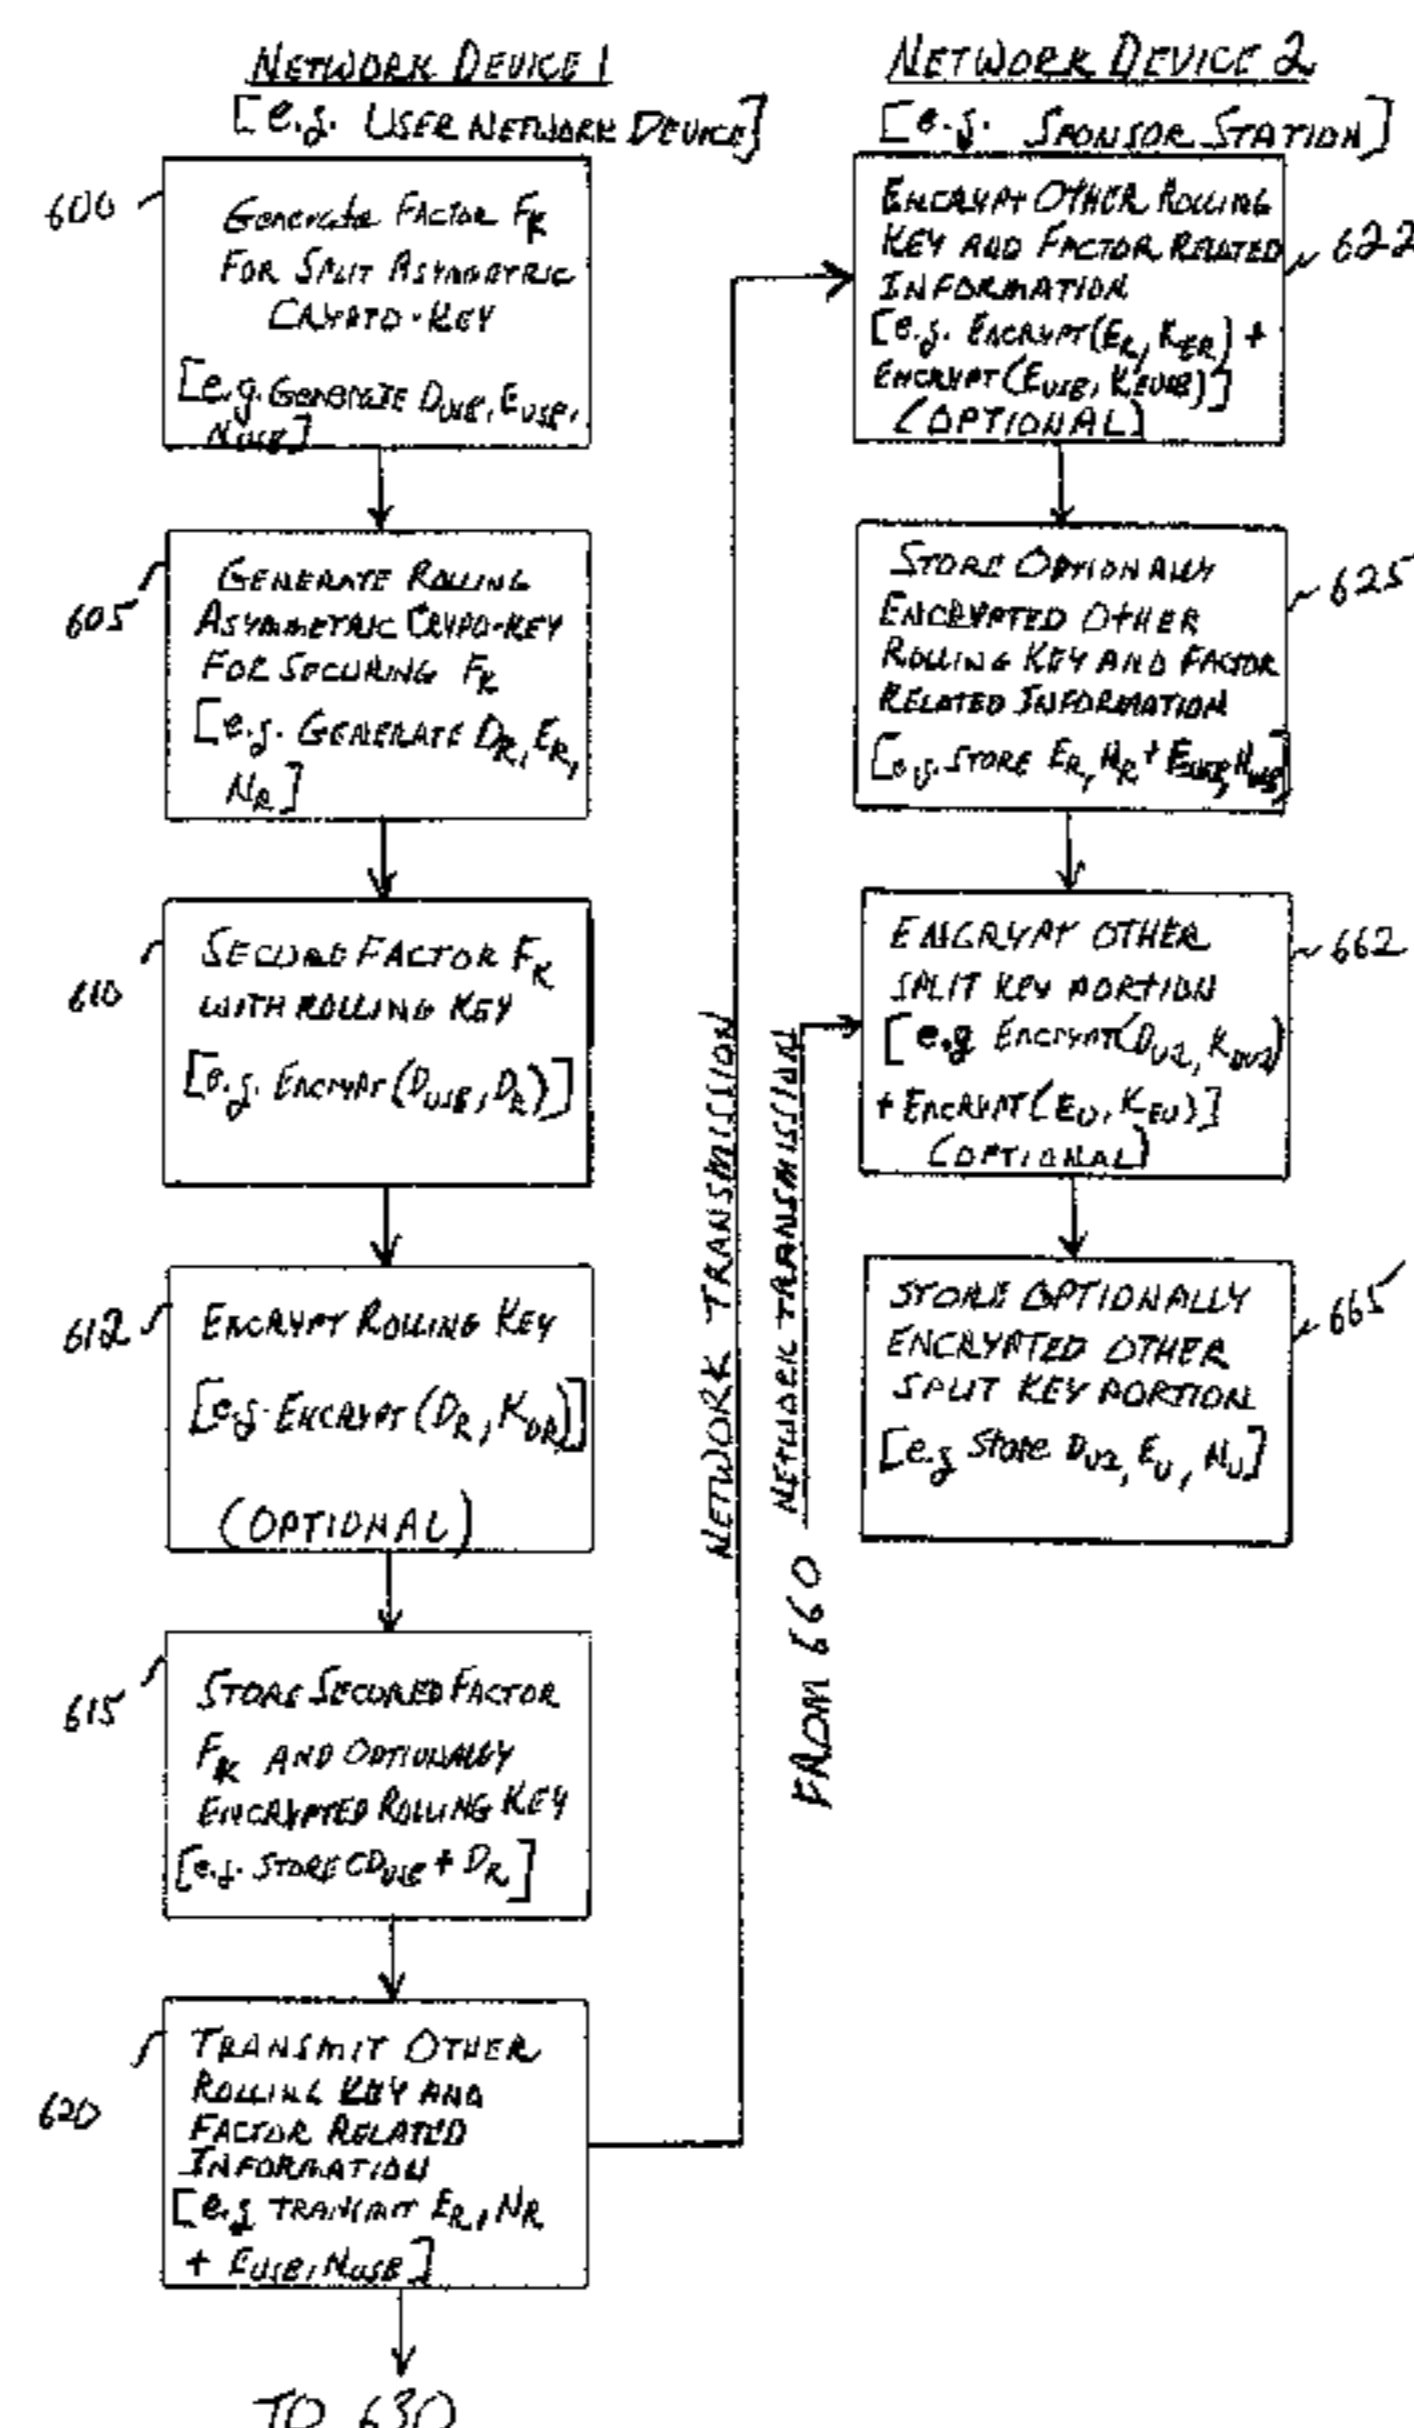 NETWORK DEVICE 1
[e.g. USER NETWORK DEVICE]
600
Generate FACTOR FK
FOR SPLIT ASYMMETRIC
CRYPTO-KEY
[e.g. GENERATE DUSB, EUSB,
NUSB]
605
GENERATE ROLLING
ASYMMETRIC CRYPO-KEY
FOR SECURING FK
[e.g. GENERATE DR, ER,
NR]
610
SECURE FACTOR FK
WITH ROLLING KEY
[e.g. ENCRYPT (DUSB, DR)]
612
ENCRYPT ROLLING KEY
[e.g. ENCRYPT (DR, KDR)]
(OPTIONAL)
615
STORE SECURED FACTOR
FK AND OPTIONALLY
ENCRYPTED ROLLING KEY
[e.g. STORE CDUSB + DR]
620
TRANSMIT OTHER
ROLLING KEY AND
FACTOR RELATED
INFORMATION
[e.g TRANSMIT ER, NR
+ EUSB, NUSB]
TO 630
NETWORK TRANSMISSION
FROM 660 NETWORK TRANSMISSION
NETWORK DEVICE 2
[e.g. SPONSOR STATION]
ENCRYPT OTHER ROLLING
KEY AND FACTOR RELATED
INFORMATION
[e.g. ENCRYPT (ER, KER) +
ENCRYPT (EUSB, KEUSB)]
(OPTIONAL)
622
STORE OPTIONALLY
ENCRYPTED OTHER
ROLLING KEY AND FACTOR
RELATED INFORMATION
[e.g. STORE ER, NR + EUSB, NUSB]
625
ENCRYPT OTHER
SPLIT KEY PORTION
[e.g ENCRYPT (DU2, KDU2)
+ ENCRYPT (EU, KEU)]
(OPTIONAL)
662
STORE OPTIONALLY
ENCRYPTED OTHER
SPLIT KEY PORTION
[e.g Store DU2, EU, NU]
665